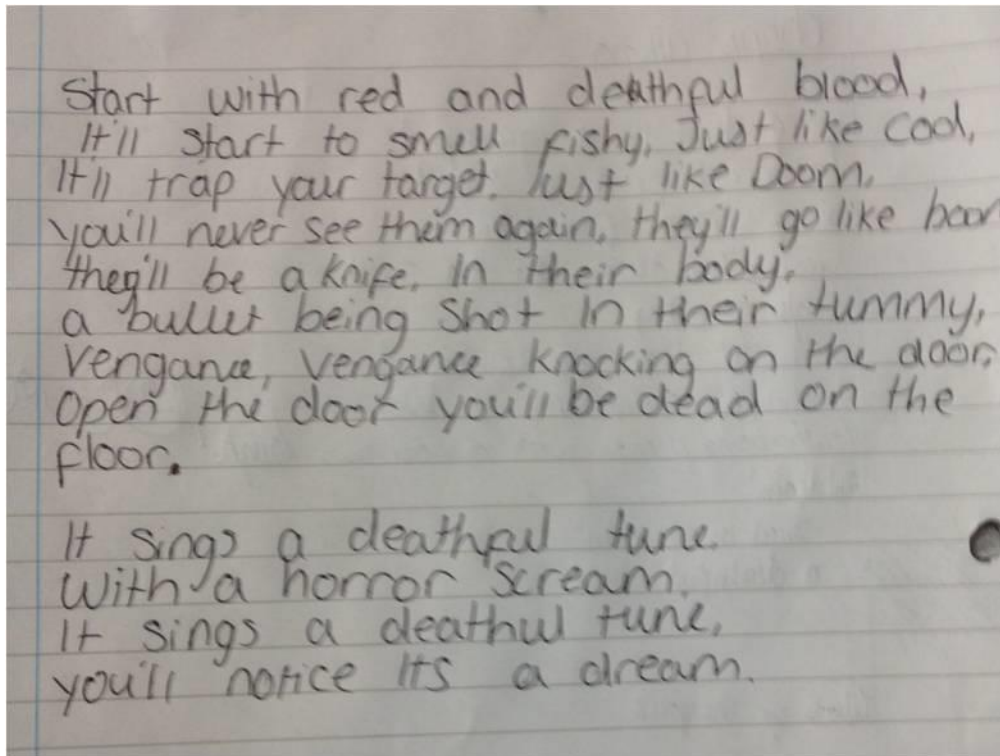 Start with red and deathful blood,
It'll start to smell fishy. Just like Cod,
It'll trap your target. Just like Doom.
you'll never see them again, they'll go like boom
they'll be a knife. In their body.
a bullet being shot in their tummy,
Vengance, vengance knocking on the door,
Open the door you'll be dead on the
floor.
It sings a deathful tune.
With a horror scream.
It sings a deathul tune,
you'll notice its a dream.